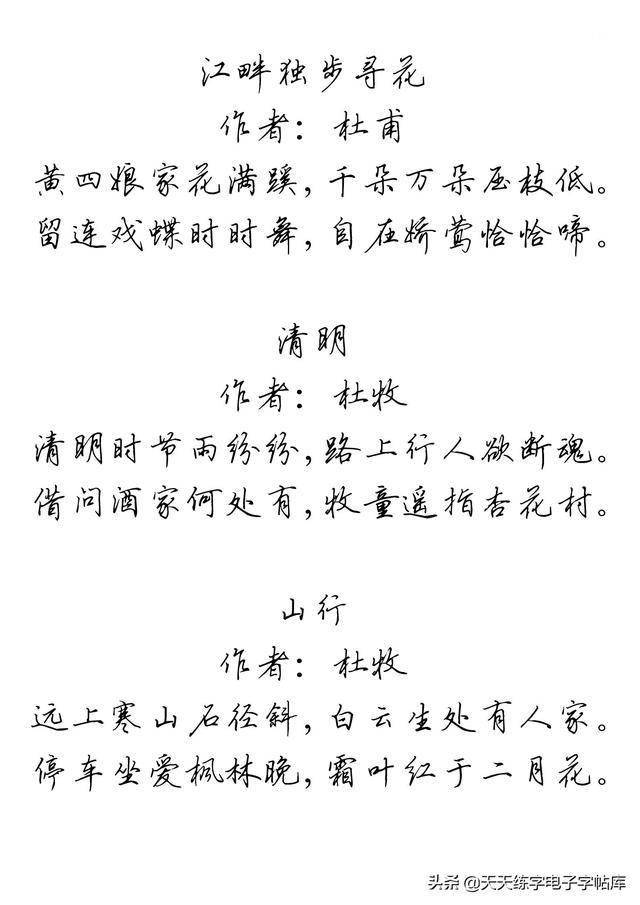 江畔独步寻花
作者：杜甫
黄四娘家花满蹊，千朵万朵压枝低。
留连戏蝶时时舞，自在娇莺恰恰啼。
清明
作者：杜牧
清明时节雨纷纷，路上行人欲断魂。
借问酒家何处有，牧童遥指杏花村。
山行
作者：杜牧
远上寒山石径斜，白云生处有人家。
停车坐爱枫林晚，霜叶红于二月花。
头条 @天天练字电子字帖库